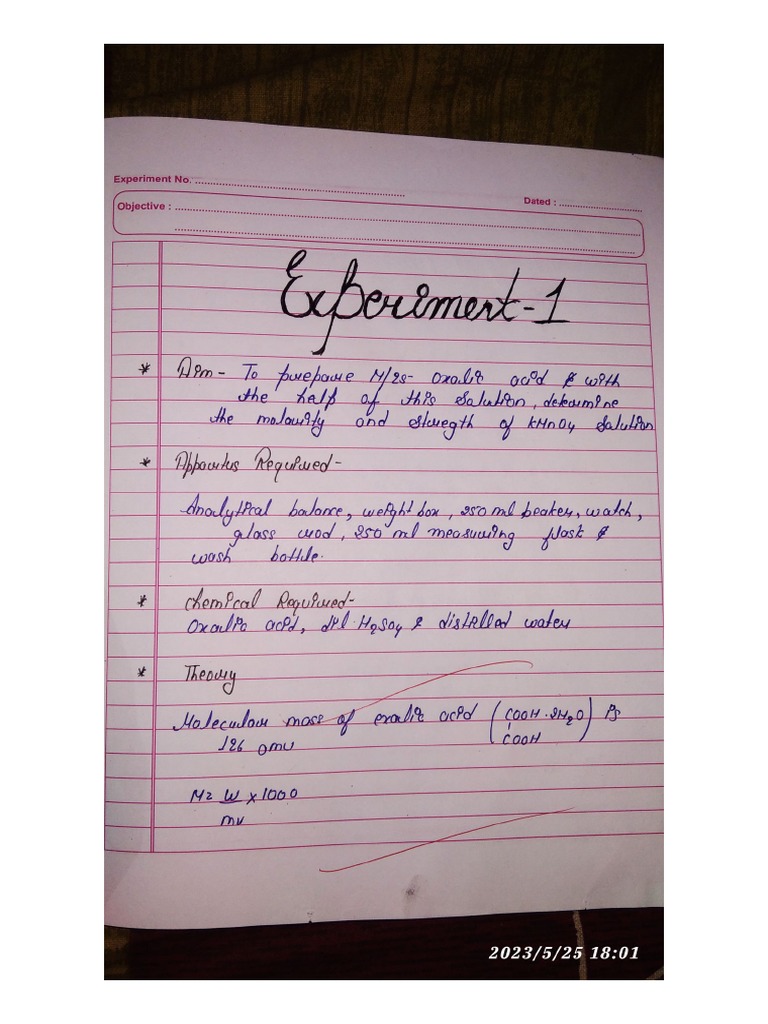 Experiment No. ..........................................................................
Dated : ..............................
Objective : ..........................................................................
Experiment-1
* Aim - To prepare M/25- Oxalic acid & with
the help of this Solution, determine
the molarity and strength of KMnO4 Solution
* Apparatus Required-
Analytical balance, weight box, 250 ml beaker, watch,
glass rod, 250 ml measuring flask &
wash bottle.
* Chemical Required-
Oxalic acid, dil. H2SO4 & distilled water
* Theory
Molecular mass of oxalic acid (COOH·2H2O) is
COOH
126 amu
M= W x 1000
mv
2023/5/25 18:01